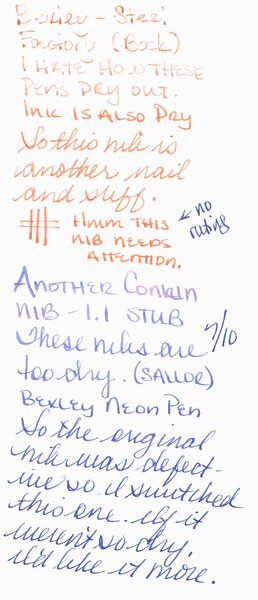 Bexley - Steel
Factory (Bock)
I HATE HOW THESE
PENS DRY OUT.
INK IS ALSO DRY
So this nib is
another nail
and stiff.
HMM THIS
NIB NEEDS
ATTENTION.
← no
rating
ANOTHER CONKLIN
NIB - 1.1 STUB
These nibs are
too dry. (SAILOR)
7/10
BEXLEY NEON PEN
So the original
nib was defect-
ive so I switched
this one. If it
weren't so dry,
I'd like it more.